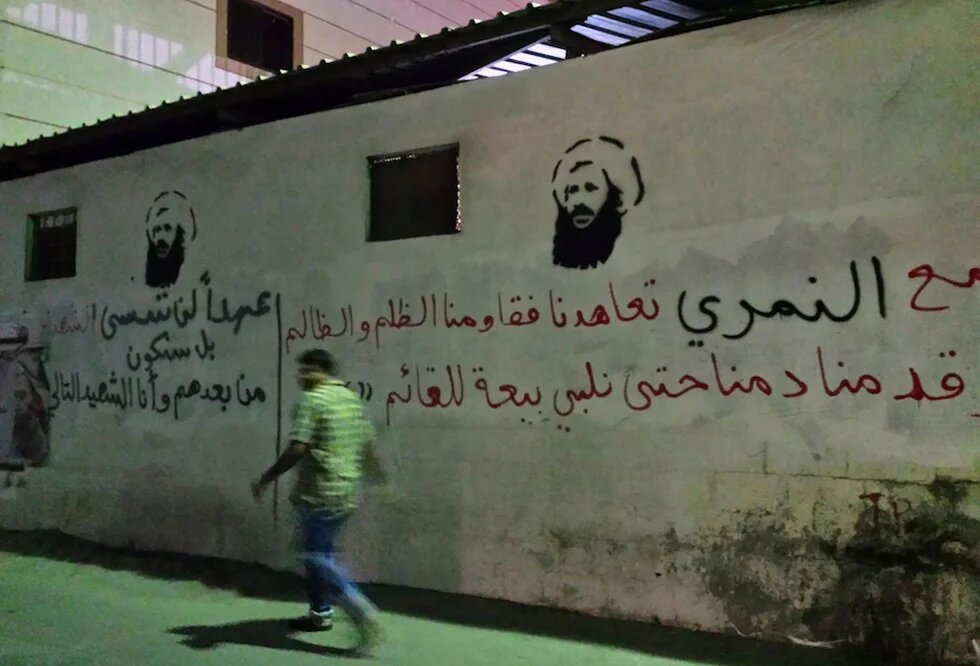 مع النمري تعاهدنا فقاومنا الظلم والظالم
قدمنا دمنا حتى نلبي بيعة للقائم »
عهداً لن ننسى الشهداء
بل سنكون
من بعدهم وأنا الشهيد التالي